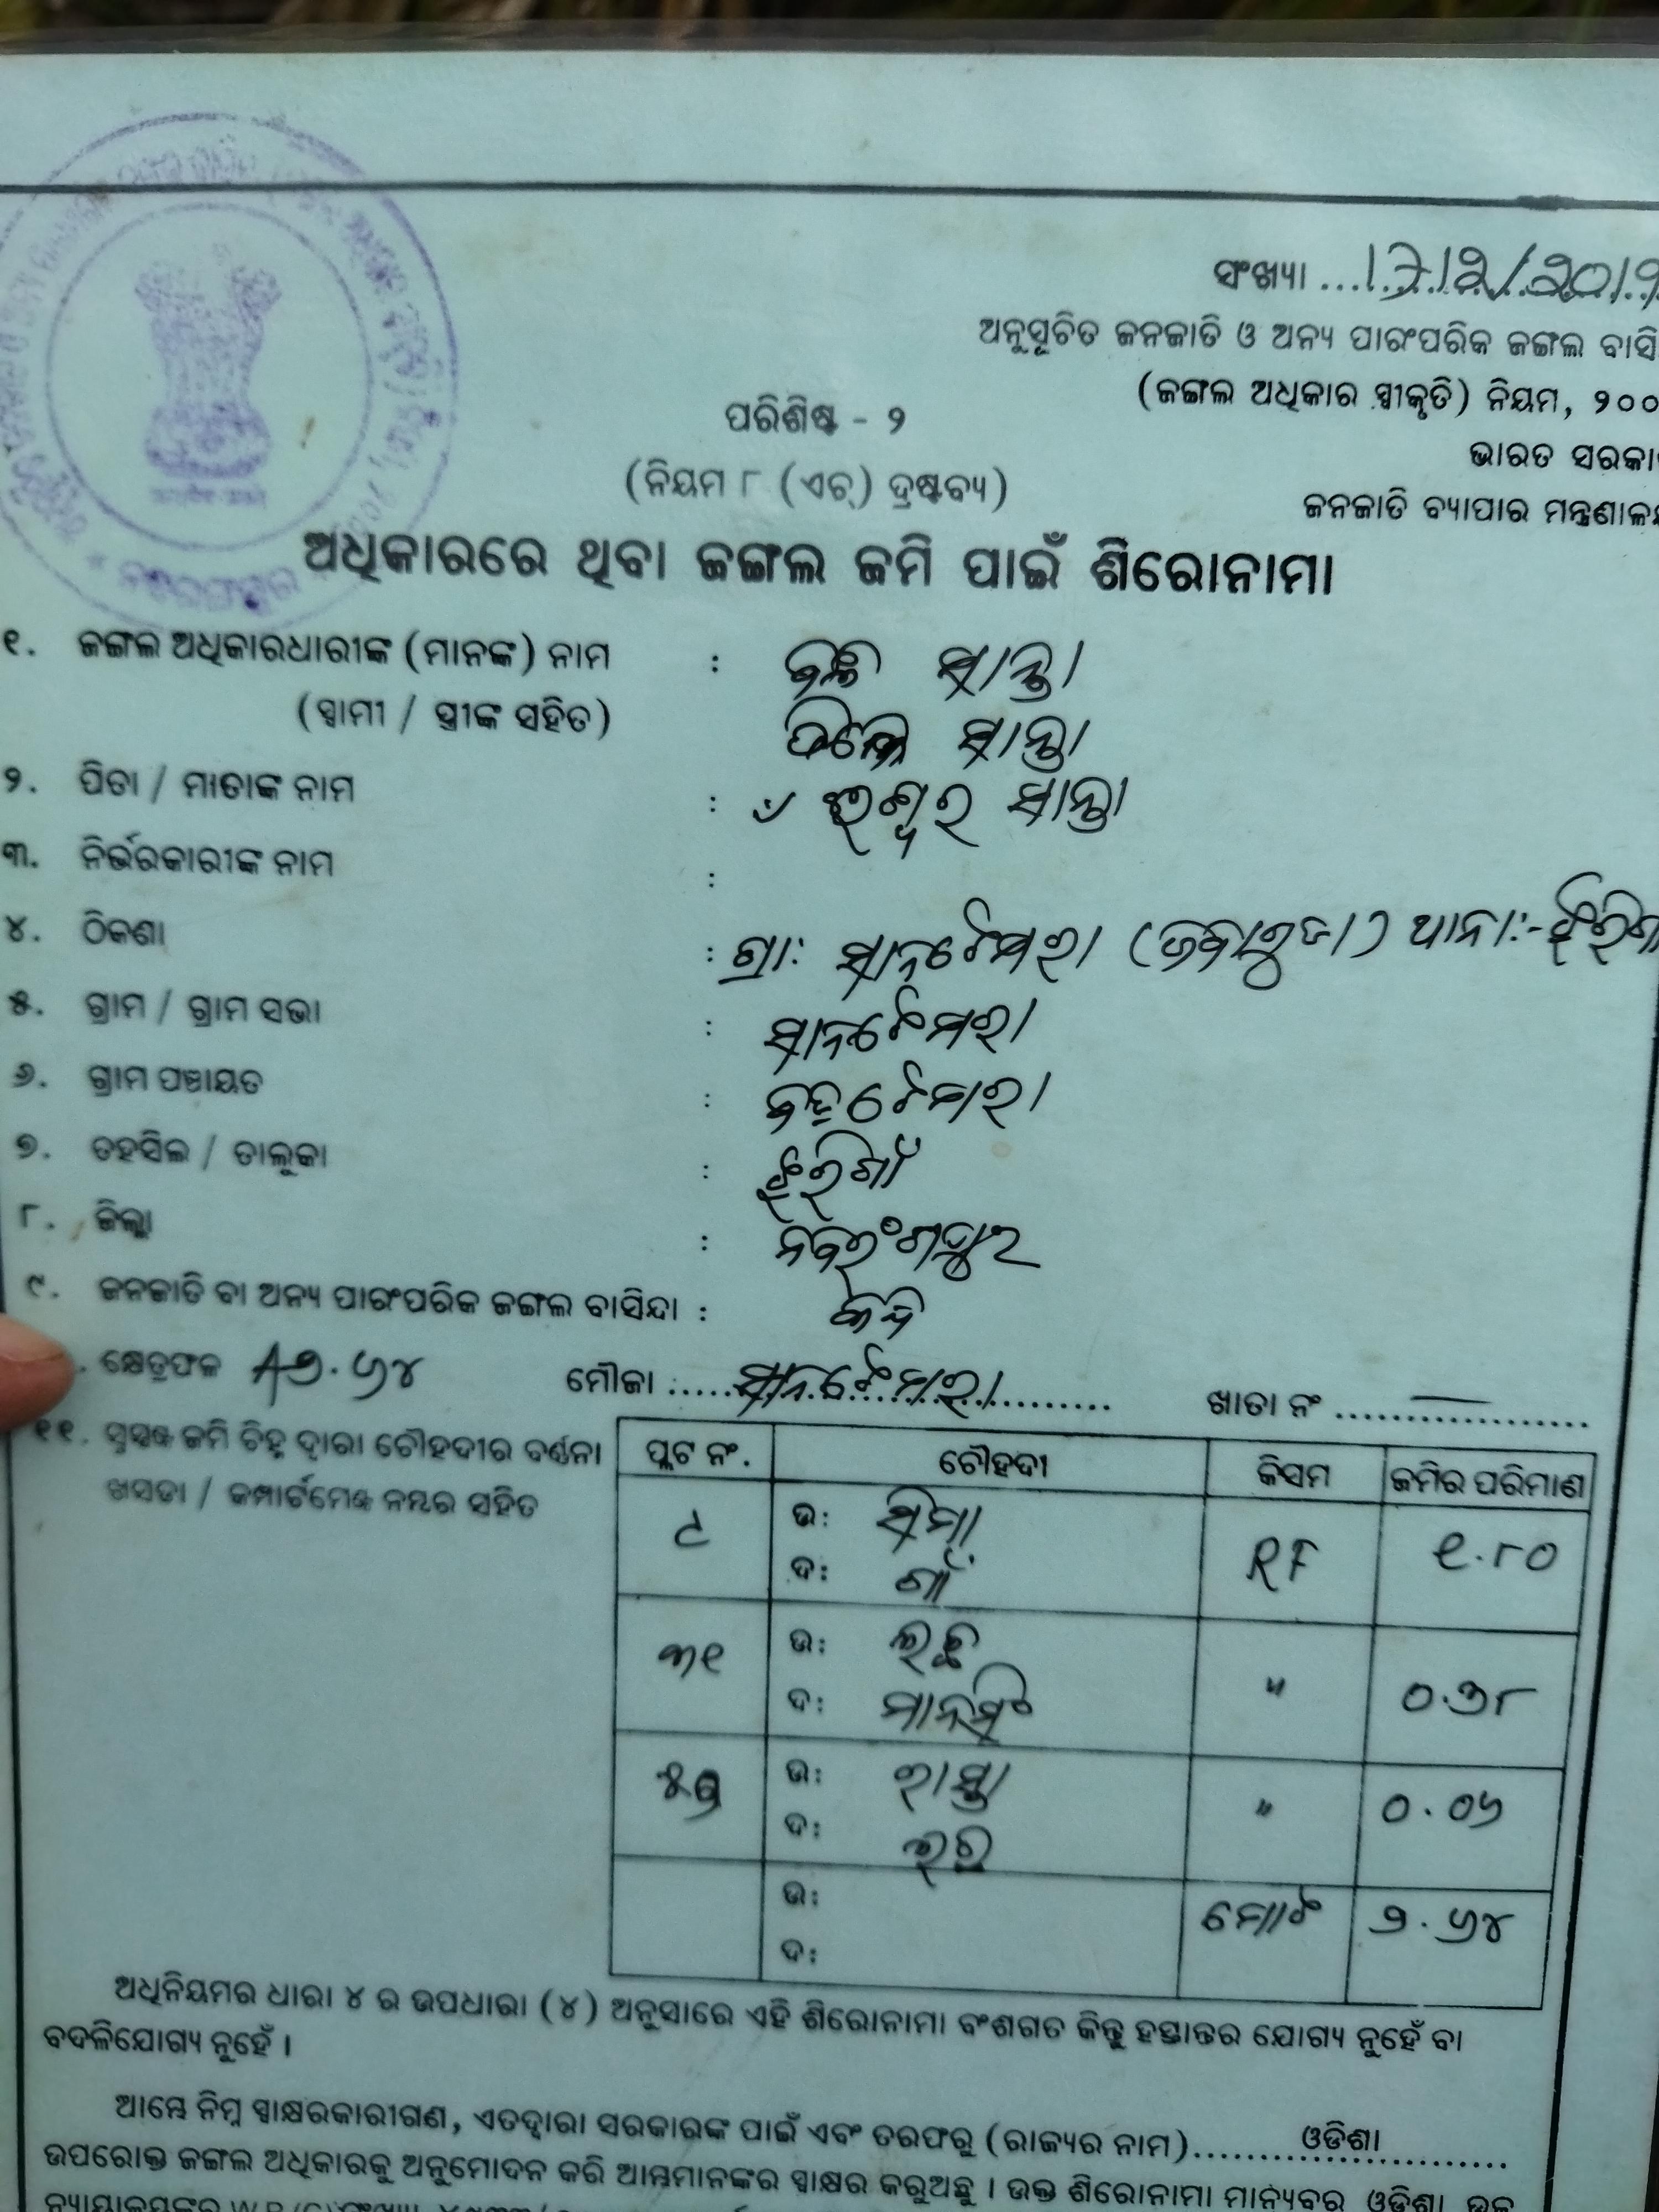 ସଂଖ୍ୟା
ଅନୁସୂଚିତ ଜନଜାତି ଓ ଅନ୍ୟ ପାରଂପରିକ ଜଙ୍ଗଲ ବାସି
(ଜଙ୍ଗଲ ଅଧିକାର ସ୍ୱୀକୃତି) ନିୟମ, ୨୦୦
ଭାରତ ସରକା
ଜନଜାତି ବ୍ୟାପାର ମନ୍ତ୍ରଣାଳ
ପରିଶିଷ୍ଟ - ୨
(ନିୟମ ୮ (ଏଚ୍) ଦ୍ରଷ୍ଟବ୍ୟ)
ଅଧିକାରରେ ଥିବା ଜଙ୍ଗଲ ଜମି ପାଇଁ ଶିରୋନାମା
୧. ଜଙ୍ଗଲ ଅଧିକାରଧାରୀଙ୍କ (ମାନଙ୍କ) ନାମ : ସାନ୍ତା
(ସ୍ୱାମୀ / ସ୍ତ୍ରୀଙ୍କ ସହିତ) ସାନ୍ତା
୨. ପିତା / ମାତାଙ୍କ ନାମ : ଈଶ୍ୱର ସାନ୍ତା
୩. ନିର୍ଭରକାରୀଙ୍କ ନାମ :
୪. ଠିକଣା : ଗ୍ରା: ସାନଟେମରା ଥାନା:-
୫. ଗ୍ରାମ / ଗ୍ରାମ ସଭା : ସାନଟେମରା
୬. ଗ୍ରାମ ପଞ୍ଚାୟତ : ବଡ଼ଟେମରା
୭. ତହସିଲ / ତାଲୁକା : ଝରିଗାଁ
୮. ଜିଲ୍ଲା : ନବରଂଗପୁର
୯. ଜନଜାତି ବା ଅନ୍ୟ ପାରଂପରିକ ଜଙ୍ଗଲ ବାସିନ୍ଦା :
. କ୍ଷେତ୍ରଫଳ A୨.୬୪ ମୌଜା ..... ସାନଟେମରା ..... ଖାତା ନଂ .....
୧୧. ସୁସ୍ପଷ୍ଟ ଜମି ଚିହ୍ନ ଦ୍ୱାରା ଚୌହଦୀର ବର୍ଣ୍ଣନା
ଖସଡା / କମ୍ପାର୍ଟମେଣ୍ଟ ନମ୍ବର ସହିତ
ପ୍ଲଟ ନଂ. ଚୌହଦୀ କିସମ ଜମିର ପରିମାଣ
୯ ଉ: ସିମା RF ୧.୮୦
ଦ: ଗାଁ
୩୧ ଉ: " ୦.୩୮
ଦ: ମାନସିଂ
ଉ: ରାସ୍ତା " ୦.୦୬
ଦ:
ଉ: ମୋଟ ୨.୬୪
ଦ:
ଅଧିନିୟମର ଧାରା ୪ ର ଉପଧାରା (୪) ଅନୁସାରେ ଏହି ଶିରୋନାମା ବଂଶଗତ କିନ୍ତୁ ହସ୍ତାନ୍ତର ଯୋଗ୍ୟ ନୁହେଁ ବା
ବଦଳିଯୋଗ୍ୟ ନୁହେଁ ।
ଆମ୍ଭେ ନିମ୍ନ ସ୍ୱାକ୍ଷରକାରୀଗଣ, ଏତଦ୍ୱାରା ସରକାରଙ୍କ ପାଇଁ ଏବଂ ତରଫରୁ (ରାଜ୍ୟର ନାମ)..... ଓଡିଶା .....
ଉପରୋକ୍ତ ଜଙ୍ଗଲ ଅଧିକାରକୁ ଅନୁମୋଦନ କରି ଆମ୍ଭମାନଙ୍କର ସ୍ୱାକ୍ଷର କରୁଅଛୁ । ଉକ୍ତ ଶିରୋନାମା ମାନ୍ୟବର ଓଡିଶା